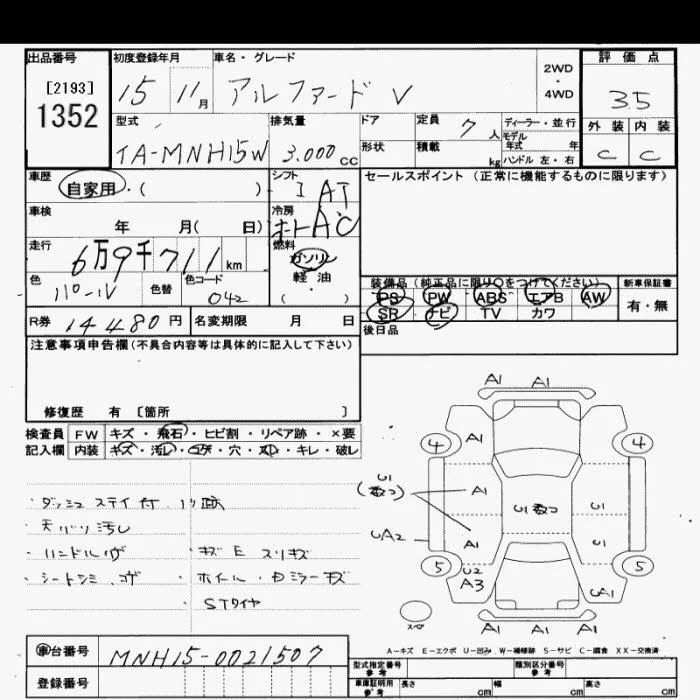 出品番号
[2193]
1352
初度登録年月
15 11月
車名・グレード
アルファード V
2WD
・
4WD
評価点
35
外装 内装
C C
型式
TA-MNH15W
排気量
3.000cc
ドア
形状
定員
7人
積載
kg
ディーラー・並行
モデル
年式 年
ハンドル 左・右
車歴
自家用・( )
シフト
I AT
車検
年 月( 日)
冷房
オートAC
走行
6万9千711km
燃料
ガソリン
軽・油
( )
色
パール
色替
色コード
042
セールスポイント(正常に機能するものに限ります)
装備品(純正品に限り〇をつけてください)
PS PW ABS エアB AW
SR ナビ TV カワ
新車保証書
有・無
後日品
R券 14480円
名変期限 月 日
注意事項申告欄(不具合内容等は具体的に記入して下さい)
修復歴 有 [箇所 ]
検査員
記入欄
FW キズ・飛石・ヒビ割・リペア跡・×要
内装 キズ・汚レ・コゲ・穴・スレ・キレ・破レ
・ダッシュ ステイ付、ノリ跡
・天バリ汚レ
・ハンドル
・シートシミ、コゲ
・キズ E スリキズ
・ホイール・ミラーキズ
STタイヤ
A1 A1
4 A1 4
U1
(数つ)
A1
U1数つ
U1
UA2
A1
U1
5 U2
A3
UA1 5
スペア
A1 A1 A1
A-キズ E-エクボ U-凹み W-補修跡 S-サビ C-腐食 XX-交換済
車台番号
MNH15-0021507
登録番号
型式指定番号
参考
類別区分番号
参考
車庫証明用
参考
長さ cm
幅 cm
高さ cm